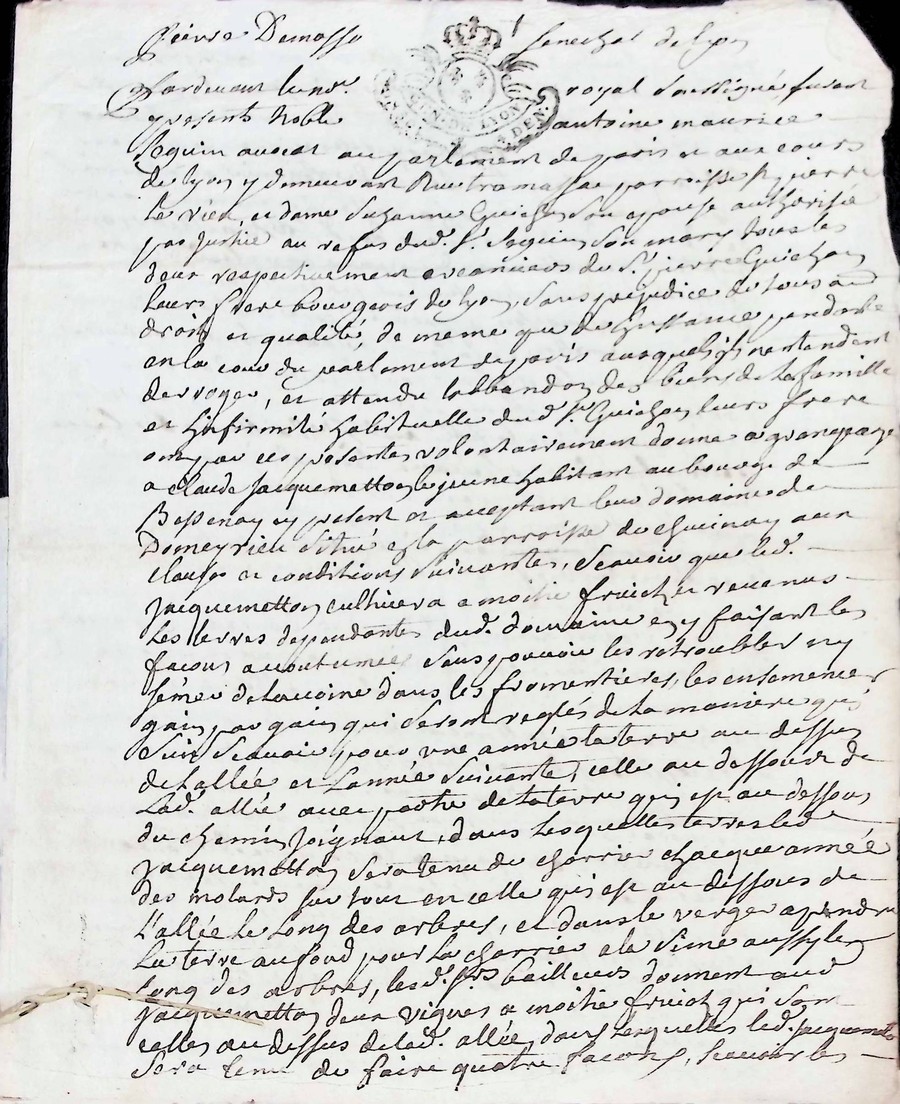 Pierre Demasso Senechal de lyon
Pardevant le no.re royal soussigné, furent
presents Noble antoine maurice
Seguin avocat au parlement de paris et aux cours
de lyon y demeurant Rue tramassac parroisse St pierre
le vieu, et dame Suzanne Guichon son epouse authorisée
par justice au refus dud. Sr. Seguin son mary tous les
deux respectivement creanciers du Sr. pierre Guichon
leurs frere bourgeois de lyon, sans prejudice de tous au
droits et qualité, de meme que de l'instance pendante
en la cour du parlement de paris auxquels ils n'entendent
deroger, et attendu labbandon des biens de la famille
et l'infirmité habituelle dud. Sr. Guichon leurs frere
ont par ces presentes volontairement donné a grangeage
a Claude Jacquemetton le jeune habitant au bourg de
Bessenay cy present et acceptant leur domaine de
Domeyrieu situé en la parroisse de chuinay aux
clauses et conditions suivantes, Scavoir que led.
Jacquemetton cultivera a moitié fruicts et revenus
les terres dependantes dud. domaine en y faisant les
façons acoutumées sans pouvoir les retroubler ny
semer de lavoine dans les fromentieres, les ensemencer
gain par gain qui seront reglés de la maniere qui
suit Scavoir pour une année la terre au dessus
de lallée et l'année suivante, celle au dessous de
Lad. allée avec partie de la terre qui est au dessous
du chemin joignant, dans lesquelles terres led
Jacquemetton sera tenu de charrier chacque année
des molards sur tout en celle qui est au dessous de
l'allée le long des arbres, et dans le verger a prendre
la terre au fond pour la charrier a la sime aussy le
long des arbres, les d. Srs. bailleurs donnent aud
Jacquemetton deux vignes a moitié fruict qui sont
celles au dessus de lad. allée, dans lesquelles led. Jacquemetto
Sera tenu de faire quatre façons, Scavoir les